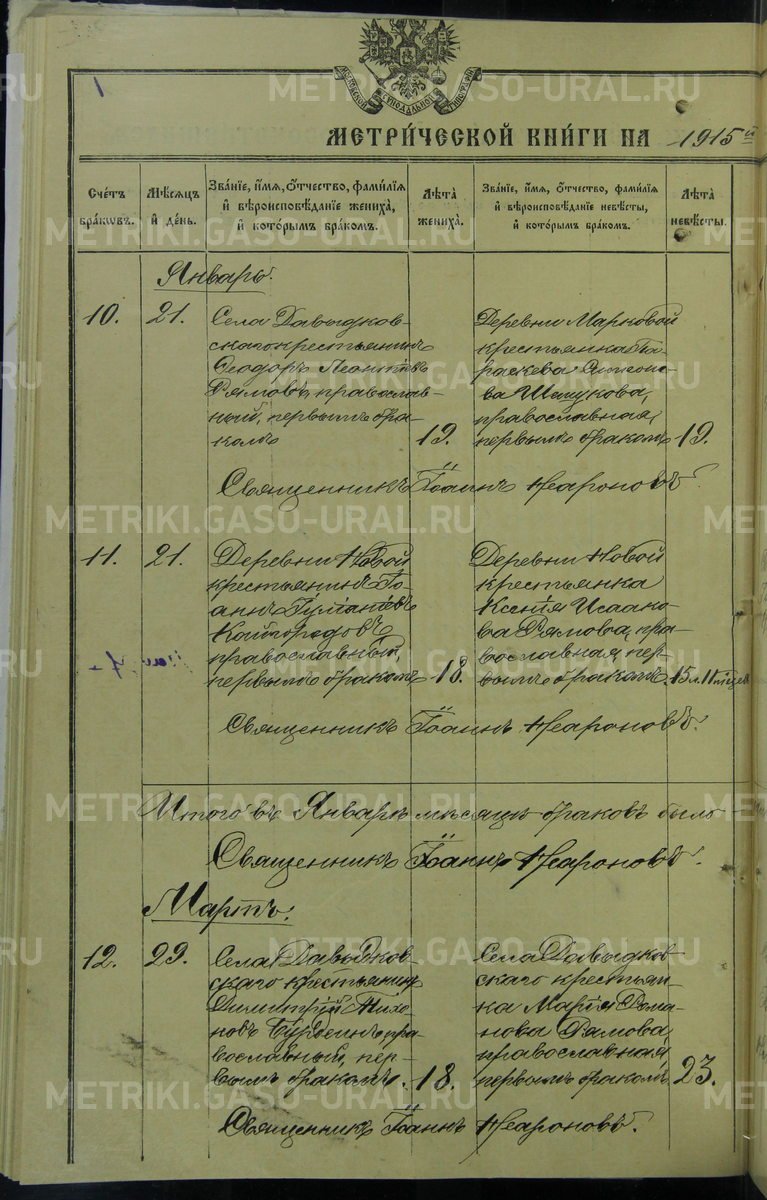 1
МОСКОВСКОЙ СѴНОДАЛЬНОЙ ТИПОГРАФІИ
МЕТРИ́ЧЕСКОЙ КНИ́ГИ НА 1915й
Сче́тъ бра́ковъ.
Мѣ́сяцъ и҆ де́нь.
Зва́нїе, и҆́мя, ѻ҆́тчество, фами́лїя и҆ вѣроисповѣ́данїе жениха̀, и҆ кото́рымъ бра́комъ.
Лѣ́та жениха̀.
Зва́нїе, и҆́мя, ѻ҆́тчество, фами́лїя и҆ вѣроисповѣ́данїе невѣ́сты, и҆ кото́рымъ бра́комъ.
Лѣ́та невѣ́сты.
Январь.
10.
21.
Села Давыдков-
скаго крестьянинъ
Ѳеодоръ Леонтіевъ
Рямовъ, православ-
ный, первымъ бра-
комъ
19.
Деревни Марковой
крестьянка Па-
раскева
ва
православная,
первымъ бракомъ
19.
Священникъ Іоаннъ Неароновъ.
11.
21.
Деревни Новой
крестьянинъ Іо-
аннъ Іуліаніевъ
Кайгородовъ
православный,
первымъ бракомъ
18.
Деревни Новой
крестьянка
Ксенія Исаако-
ва Рямова, пра-
вославная, пер-
вымъ бракомъ.
15 л. 11 мѣсяцев
Священникъ Іоаннъ Неароновъ.
Итого въ Январѣ мѣсяцѣ браковъ было
Священникъ Іоаннъ Неароновъ.
Мартъ.
12.
29.
Села Давыдков-
скаго крестьянинъ
Димитрій Тихо-
новъ пра-
вославный, пер-
вымъ бракомъ.
18.
Села Давыдков-
скаго крестьян-
ка Марія Рома-
нова Рямова
православная,
первымъ бракомъ
23.
Священникъ Іоаннъ Неароновъ.
METRIKI.GASO-URAL.RU